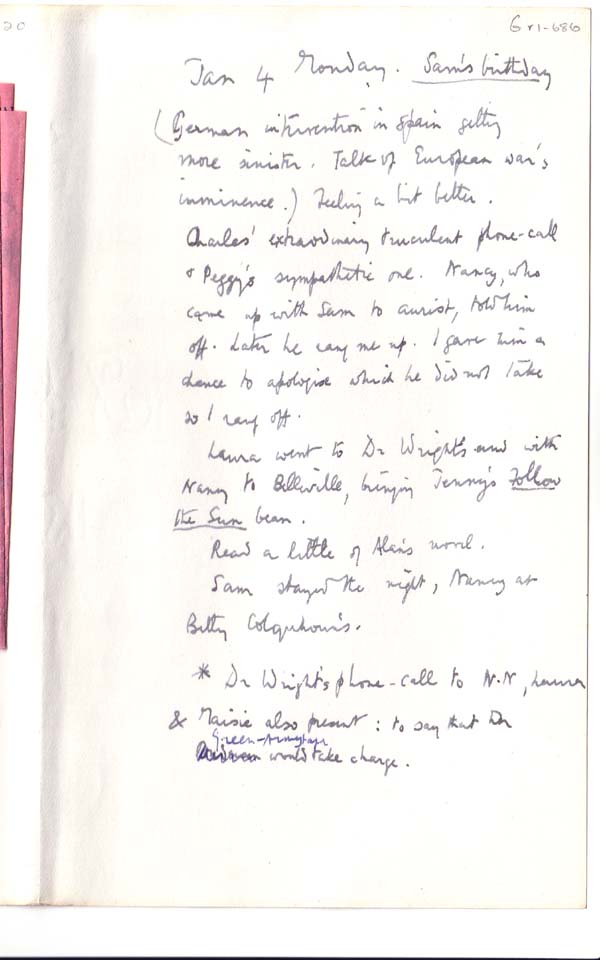 20
G Y1-686
Jan 4 Monday. Sam's birthday
(German intervention in Spain getting
more sinister. Talk of European war's
imminence.) Feeling a bit better.
Charles' extraordinary truculent phone-call
& Peggy's sympathetic one. Nancy, who
came up with Sam to aurist, told him
off. Later he rang me up. I gave him a
chance to apologise which he did not take
so I rang off.
Laura went to Dr Wright's and with
Nancy to Belleville, bringing Jenny's Follow
the Sun bean.
Read a little of Alan's novel.
Sam stayed the night, Nancy at
Betty Colquhoun's.
* Dr Wright's phone-call to N.N, Laura
& Maisie also present: to say that Dr
Green-Armytage
would take charge.